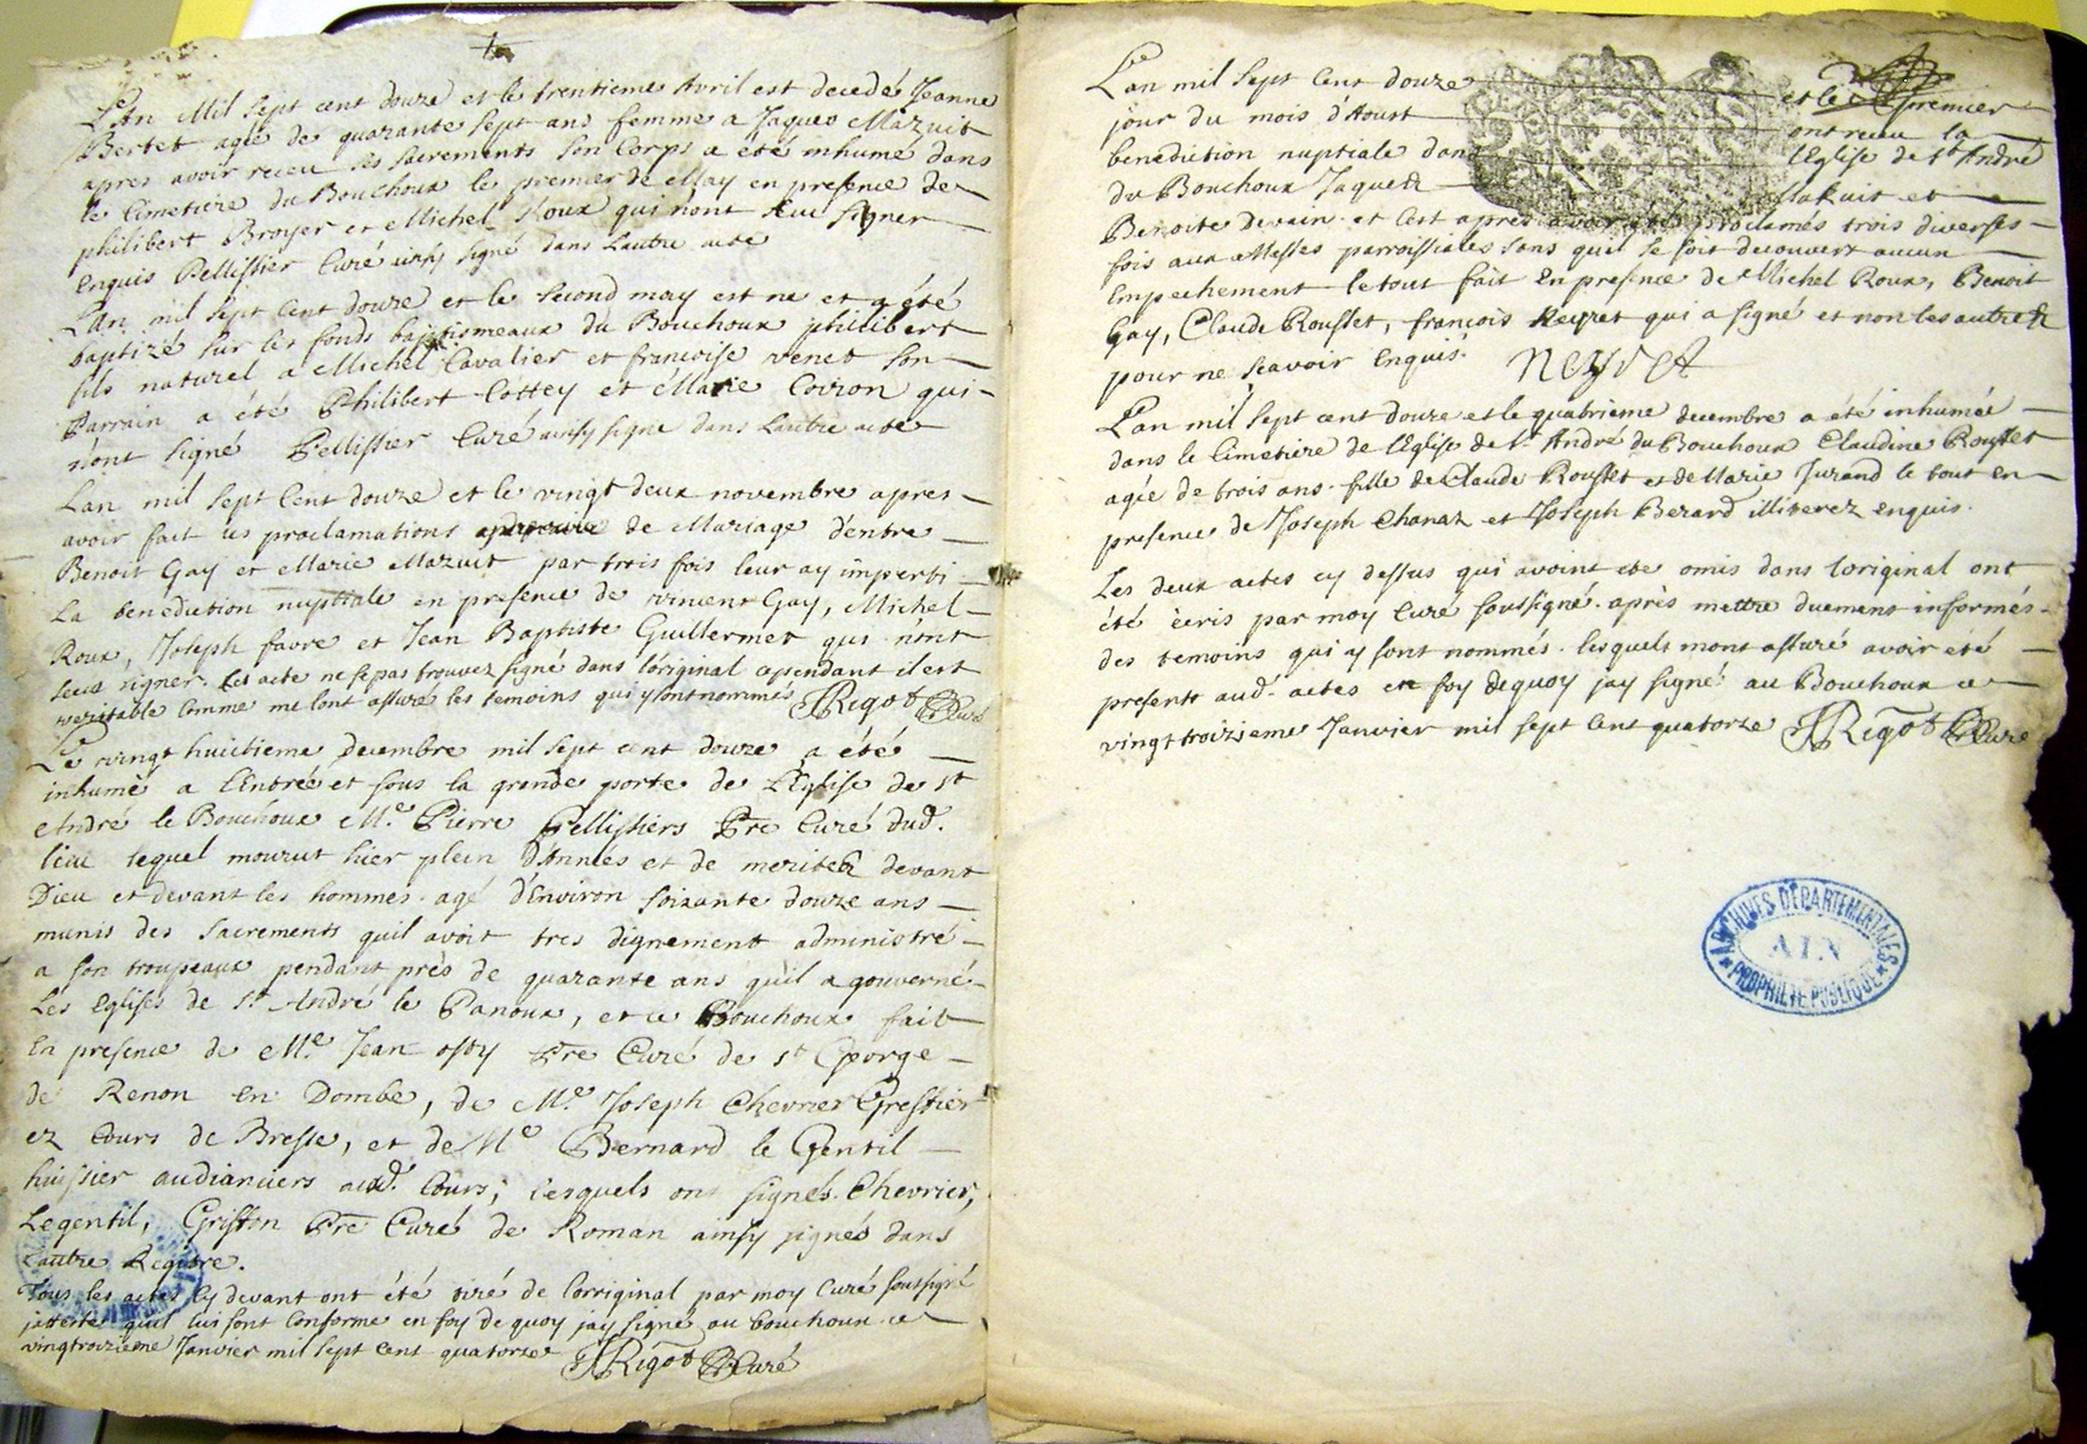 L'An Mil sept cent douze et le trentieme Avril est decedé Jeanne
Bertet agée de quarante sept ans femme a Jaques Mazuit
apres avoir receu ses sacrements son Corps a été inhumé dans
le Cimetiere du Bouchoux le premier de May en presence de
philibert Broyer et Michel Roux qui nont sceu signer
enquis Pellissier Curé ainsy signé dans Lautre acte
L'an mil sept Cent douze et le second may est ne et a été
baptizé sur les fonds baptismeaux du Bouchoux philibert
fils naturel a Michel Cavalier et francoise venet son
Parrain a été Philibert Cottey et Marie Coiron qui
n'ont signé Pellissier Curé ainsy signé dans Lautre acte
Lan mil sept Cent douze et le vingt deux novembre apres
avoir fait les proclamations de Mariage d'entre
Benoit Gay et Marie Mazuit par trois fois leur ay imperti
La benediction nuptiale en presence de vincent Gay, Michel
Roux, Joseph favre et Jean Baptiste Guillermet qui n'ont
sceu signer. Cet acte ne se pas trouvez signé dans l'original cependant il est
veritable comme me lont assuré les temoins qui y sont nommés JRigot Curé
Le vingt huictieme decembre mil sept cent douze a été
inhumé a l'Entrée et sous la grande porte de L'Eglise de st
André le Bouchoux Me. Pierre Pellissiers Pre Curé dud.
lieu lequel mourut hier plein d'Années et de merites devant
Dieu et devant les hommes. agé d'Environ soixante douze ans
munis des Sacrements quil avoit tres dignement administré
a son troupeaux pendant près de quarante ans qu'il a gouverné
Les Eglises de st. André le Panoux, et ce Bouchoux fait
En presence de Me. Jean Pre Curé de st George
de Renon en Dombe, de Me. Joseph Chevrier Greffier
ez Cours de Bresse, et de Me Bernard le Gentil
huissier audianciers auxd. Cours; Lesquels ont signés. Chevrier,
Legentil, Griffon Pre Curé de Roman ainsy signés dans
Lautre Regitre.
Tous les actes cy devant ont été tiré de Lorriginal par moy Curé soussigné
jatteste quil lui sont Conforme en foy de quoy jay signé au bouchoux ce
vingtroizieme Janvier mil sept Cent quatorze JRigot Curé
Lan mil sept Cent douze et le premier
jour du mois d'Aoust ont receu la
benediction nuptiale dans l'Eglise de st André
du Bouchoux Jaques et
Benoite Devain et Cest après avoir étés proclamés trois diverses
fois aux Messes parroissiales sans quil se soit decouvert aucun
Empechement le tout fait En presence de Michel Roux, Benoit
Gay, Claude Rousset, francois Neyret qui a signé et non les autres
pour ne scavoir Enquis. Neyret
L'an mil sept cent douze et le quatrieme decembre a été inhumée
dans le Cimetiere de l'Eglise de st. André du Bouchoux Claudine Rousset
agée de trois ans fille de Claude Rousset et de Marie Jurand le tout en
presence de Joseph Chanaz et Joseph Berard illiterez enquis.
Les deux actes cy dessus qui avoint ete omis dans loriginal ont
été ècris par moy Curé soussigné. après mettre duement informés
des temoins qui y sont nommés. lesquels mont assuré avoir été
presents aud. actes en foy dequoy jay signé au Bouchoux ce
vingt troizieme Janvier mil sept Cent quatorze JRigot Curé
ARCHIVES DÉPARTEMENTALES
AIN
PROPRIÉTÉ PUBLIQUE